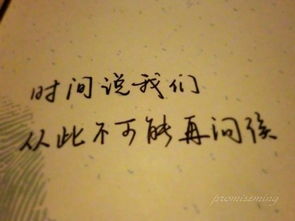 时间说我们
从此不可能再问候
promiseming